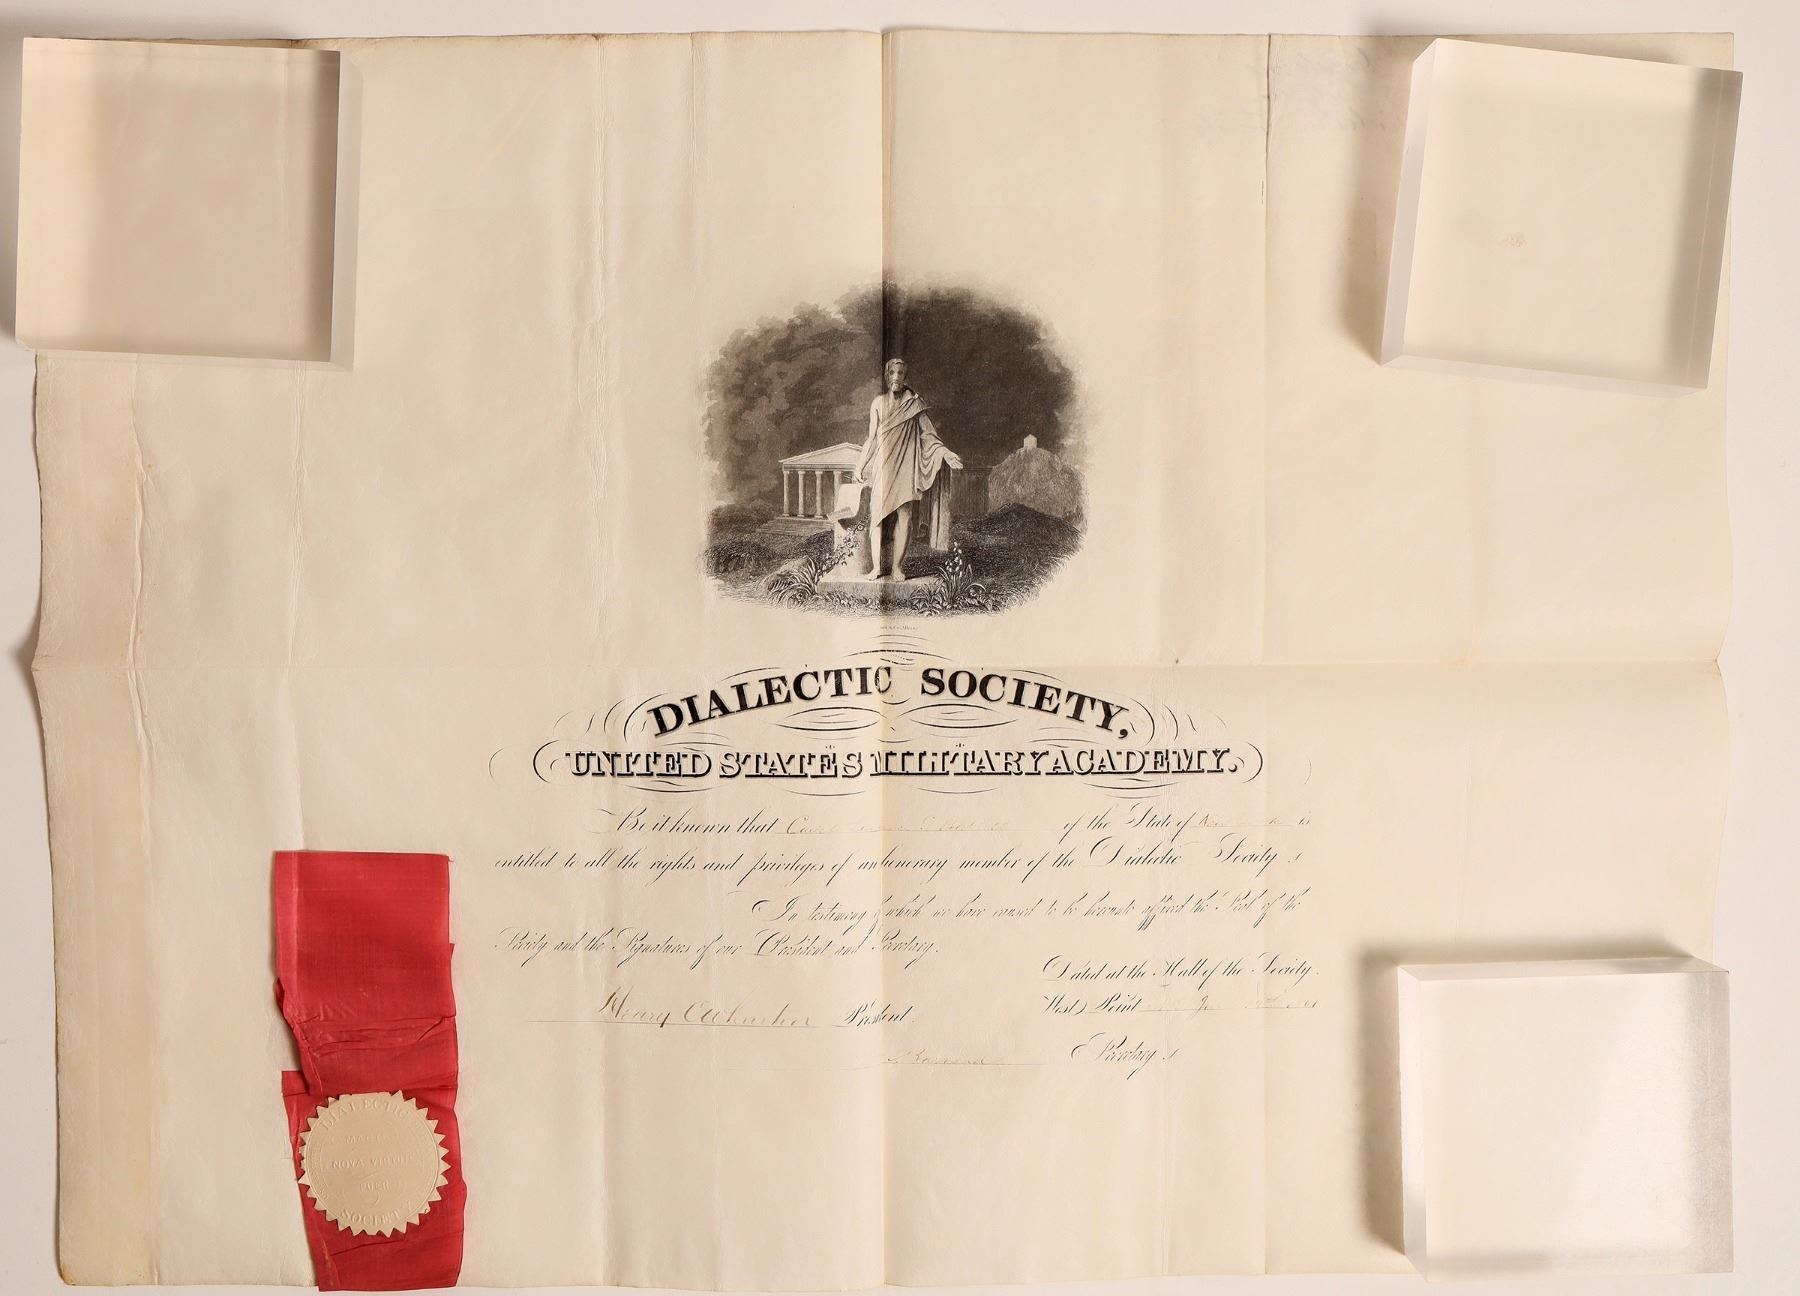 DIALECTIC SOCIETY,
UNITED STATES MILITARY ACADEMY.
Be it known that of the State of New is
entitled to all the rights and privileges of an honorary member of the Dialectic Society
In testimony of which we have caused to be hereunto affixed the Seal of the
Society and the Signatures of our President and Secretary.
Dated at the Hall of the Society.
West Point
Henry C Wharton President.
Secretary
DIALECTIC
NOVA VIRTUS
SOCIETY